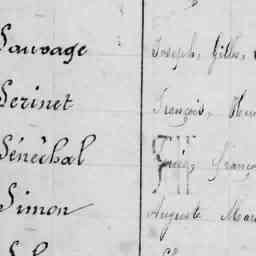 Sauvage Joseph, Gilles,
Serinet François,
Sénéchal François
Simon Auguste